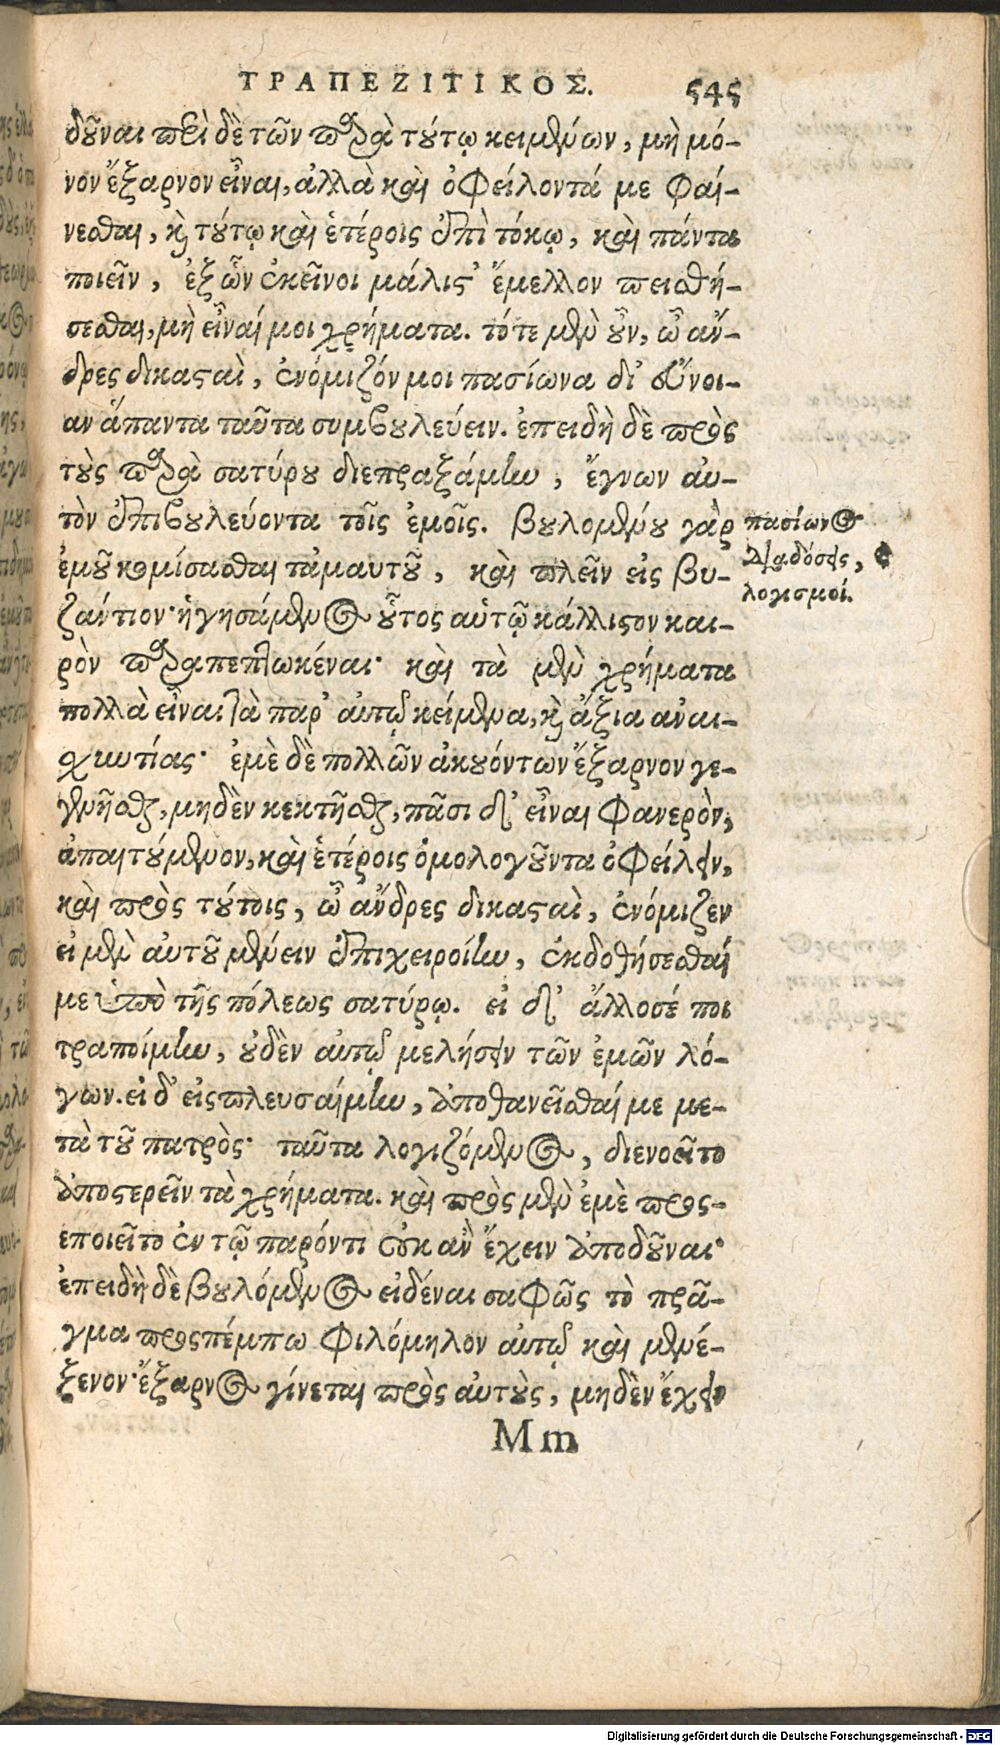 ΤΡΑΠΕΖΙΤΙΚΟΣ. 545
δοῦναι περὶ δὲ τῶν παρὰ τούτῳ κειμένων, μὴ μό-
νον ἔξαρνον εἶναι, ἀλλὰ καὶ ὀφείλοντά με φαί-
νεσθαι, καὶ τούτῳ καὶ ἑτέροις ἐπὶ τόκῳ, καὶ πάντα
ποιεῖν, ἐξ ὧν ἐκεῖνοι μάλιστ' ἔμελλον πεισθή-
σεσθαι, μὴ εἶναί μοι χρήματα. τότε μὲν οὖν, ὦ ἄν-
δρες δικασταὶ, ἐνόμιζόν μοι πασίωνα δι' εὔνοι-
αν ἅπαντα ταῦτα συμβουλεύειν. ἐπειδὴ δὲ πρὸς
τοὺς παρὰ σατύρου διεπραξάμην, ἔγνων αὐ-
τὸν ἐπιβουλεύοντα τοῖς ἐμοῖς. βουλομένου γὰρ
ἐμοῦ κομίσασθαι τἀμαυτοῦ, καὶ πλεῖν εἰς βυ-
ζάντιον· ἡγησάμενος οὗτος αὑτῷ κάλλιστον και-
ρὸν παραπεπτωκέναι· καὶ τὰ μὲν χρήματα
πολλὰ εἶναι τὰ παρ' αὐτῷ κείμενα, καὶ ἄξια ἀναι-
σχυντίας· ἐμὲ δὲ πολλῶν ἀκουόντων ἔξαρνον γε-
γενῆσθαι, μηδὲν κεκτῆσθαι, πᾶσι δ' εἶναι φανερὸν,
ἀπαιτούμενον, καὶ ἑτέροις ὁμολογοῦντα ὀφείλειν,
καὶ πρὸς τούτοις, ὦ ἄνδρες δικασταὶ, ἐνόμιζεν
εἰ μὲν αὐτοῦ μένειν ἐπιχειροίην, ἐκδοθήσεσθαί
με ὑπὸ τῆς πόλεως σατύρῳ. εἰ δ' ἄλλοσέ ποι
τραποίμην, οὐδὲν αὐτῷ μελήσειν τῶν ἐμῶν λό-
γων. εἰ δ' εἰσπλευσαίμην, ἀποθανεῖσθαί με με-
τὰ τοῦ πατρὸς· ταῦτα λογιζόμενος, διενοεῖτο
ἀποστερεῖν τὰ χρήματα. καὶ πρὸς μὲν ἐμὲ προσ-
εποιεῖτο ἐν τῷ παρόντι οὐκ ἂν ἔχειν ἀποδοῦναι·
ἐπειδὴ δὲ βουλόμενος εἰδέναι σαφῶς τὸ πρᾶ-
γμα προσπέμπω φιλόμηλον αὐτῷ καὶ μενέ-
ξενον· ἔξαρνος γίνεται πρὸς αὐτοὺς, μηδὲν ἔχειν
Mm
πασίωνος
διαδόσεις,
λογισμοί.
Digitalisierung gefördert durch die Deutsche Forschungsgemeinschaft - DFG